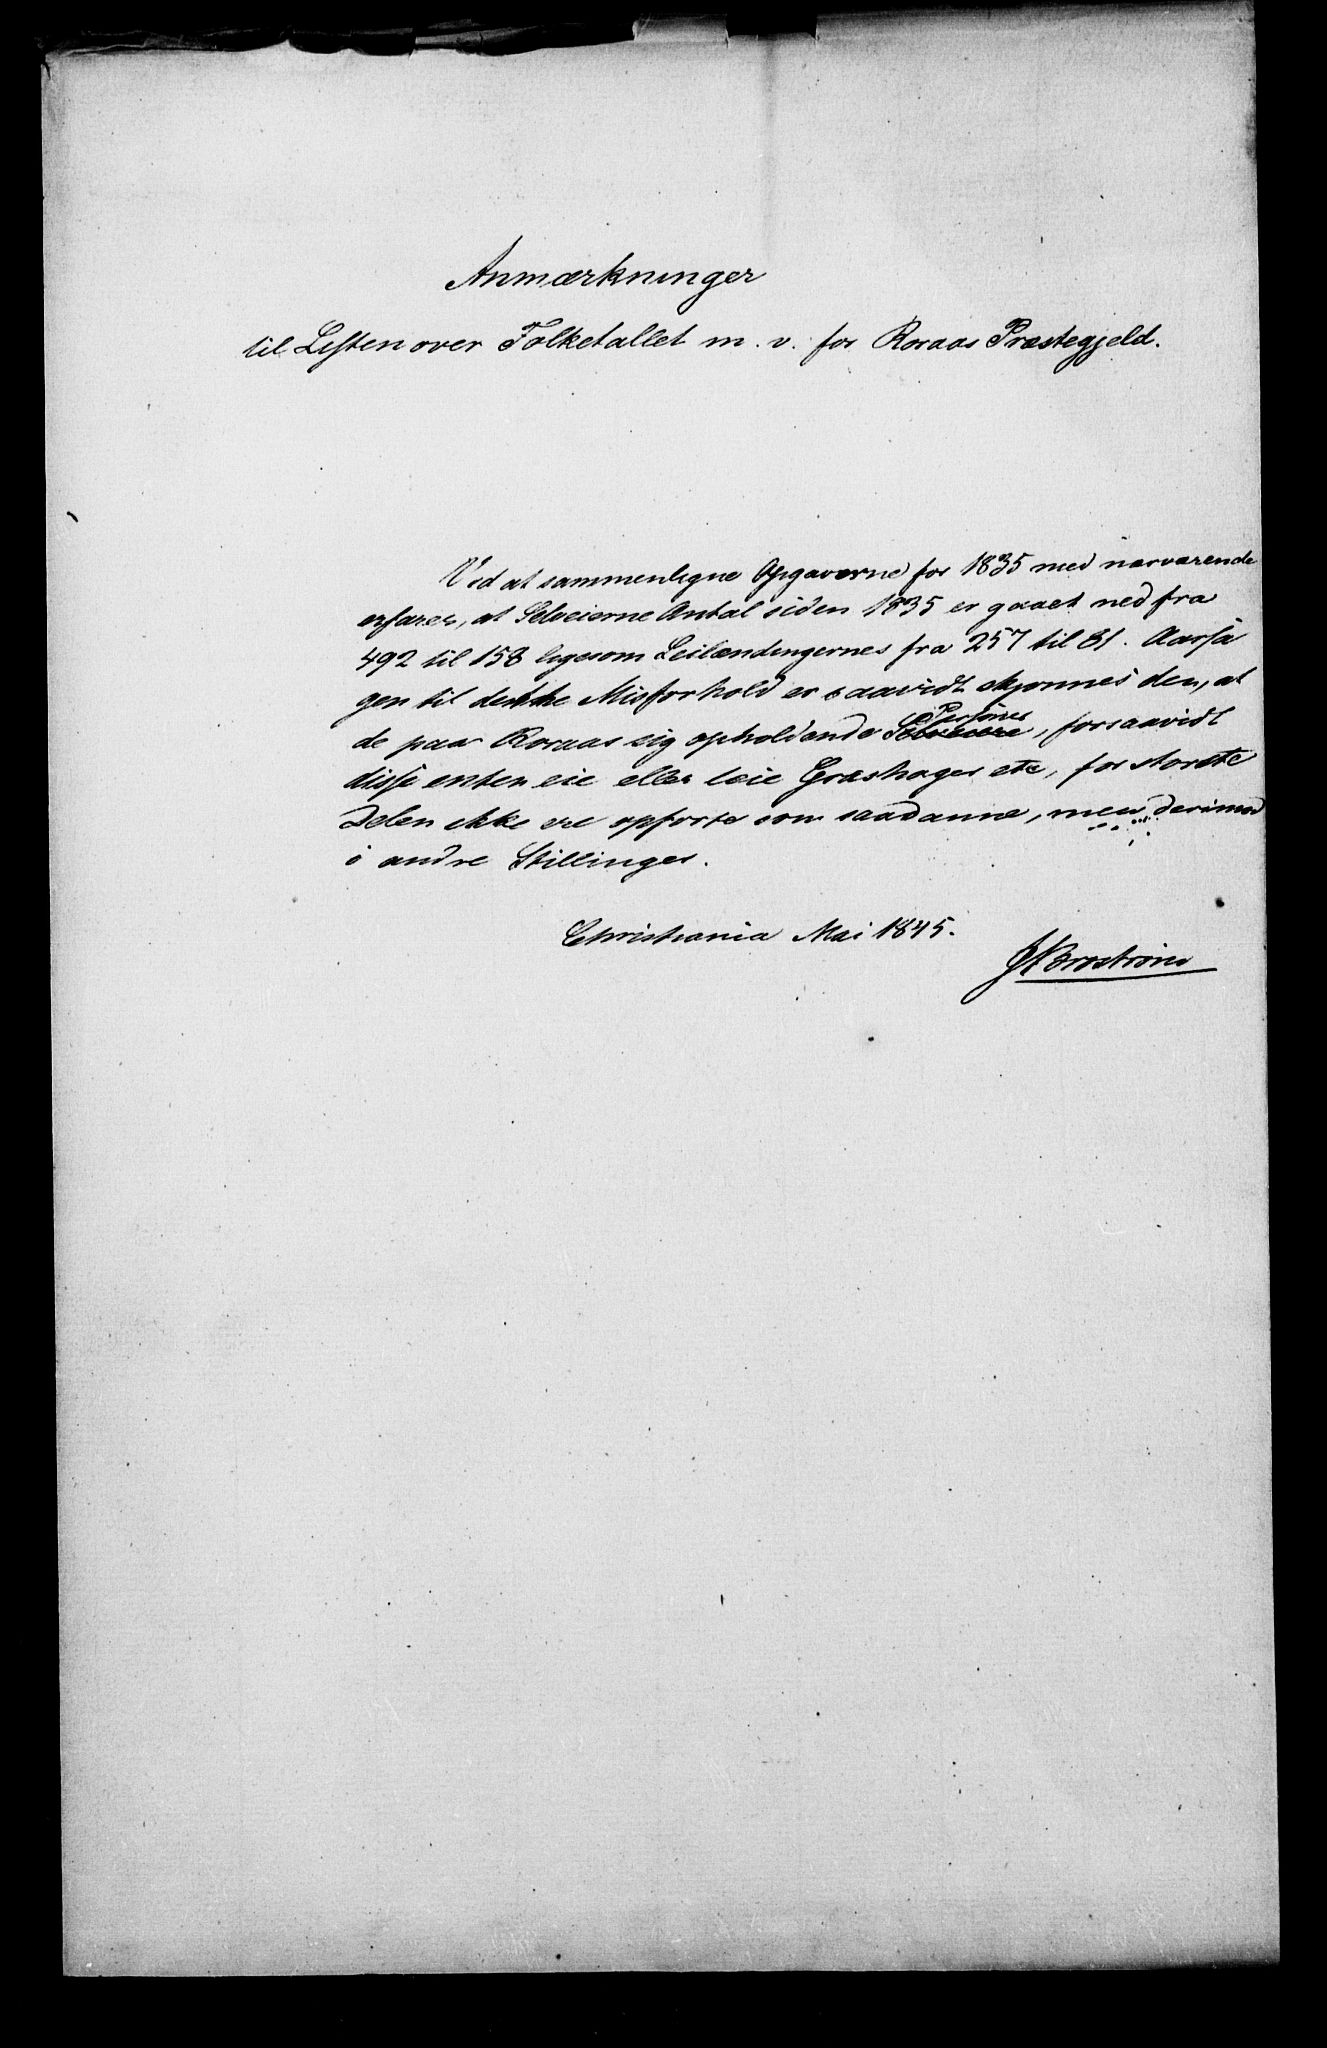 Anmærkninger
til Listen over Folketallet m. v. for Røraas Præstegjeld.
Ved at sammenligne Opgaverne for 1835 med nærværende
erfares, at Selveierne Antal siden 1835 er gaaet ned fra
492 til 158 ligesom Leilændingernes fra 257 til 81. Aarsa
gen til dette Misforhold er saavidt skjønnes den, at
de paa Røraas sig opholdende Selveiere Personer, forsaavidt
disse enten eie eller leie Græshager etc, for største
Delen ikke ere opførte som saadanne, men derimod
i andre Stillinger.
Christiania Mai 1845.